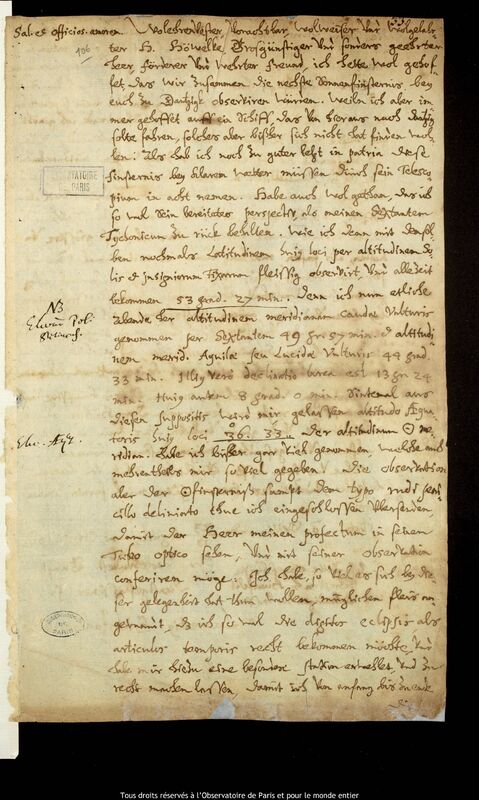 Sal. et officios. amorem. Wolehrenvester, Vorachtbar, Wolweiser und Wolgelahr-
ter H. Höwelke, Großgünstiger und sonders geehrter
Herr Förderer und wehrter Freund, ich hette wol gehof-
106
fet, das wir zusammen die nechste Sonnenfinsternis bey
euch zu Dantzigk observiren würden. Weiln ich aber im-
mer gehoffet auff ein Schiff, das von hieraus nach Dantzig
solte fahren, solches aber bißher sich nicht hat finden wol-
len: Als hab ich noch zu guter letzt in patria diese
OBSERVATOIRE
DE PARIS
finsternis bey klarem wetter müssen durch sein Telesco-
pium in acht nemen. Habe auch wol gethan, das ich
so wol sein bereitetes perspectiv, als meinen Sextantem
Tychonicum zu rück behalten. Wie ich denn mit demsel-
ben nochmals Latitudinem huius loci per altitudinem So-
lis et insigniorum fixarum fleissig observirt, und allezeit
bekommen 53 grad. 27 min. Denn ich nun etliche
NB
Elevat. Pol:
Abende her altitudinem meridianam caudæ Vulturis
genommen per Sextantem 49 gr. 57 min. et altitudi-
nem merid. Aquilæ seu Lucidæ Vulturis 44 grad
33 min. Illius vero declinatio borea est 13 gr 24
min. Huius autem 8 grad. 0 min. aus
diesen suppositis wird mir gelassen altitudo Æqua-
toris huius loci 36. 33. Der altitudinum ☉ me-
Elev. Æqu.
ridian. habe ich bißher gar viel genommen, welche auch
mehrentheils mir so viel gegeben. Die observation
aber der ☉finsterniß sampt dem typo rudi
cillo deliniato thue ich eingeschlossen übersenden,
damit der Herr meinen profectum in seinem
Tubo optico sehen, und mit seiner observation
conferirem möge. Ich habe, so viel es sich bey die-
ser gelegenheit hat thun wollen, müglichen fleis an-
OBSERVATOIRE
DE
PARIS
gewandt, das ich so wol die digitos eclipsis als
articulos temporis recht bekommen möchte, und
habe mir hiezu eine besondere station erwehlet, und zu
recht machen lassen, damit ich von anfang bis zu ende
Tous droits réservés à l'Observatoire de Paris et pour le monde entier